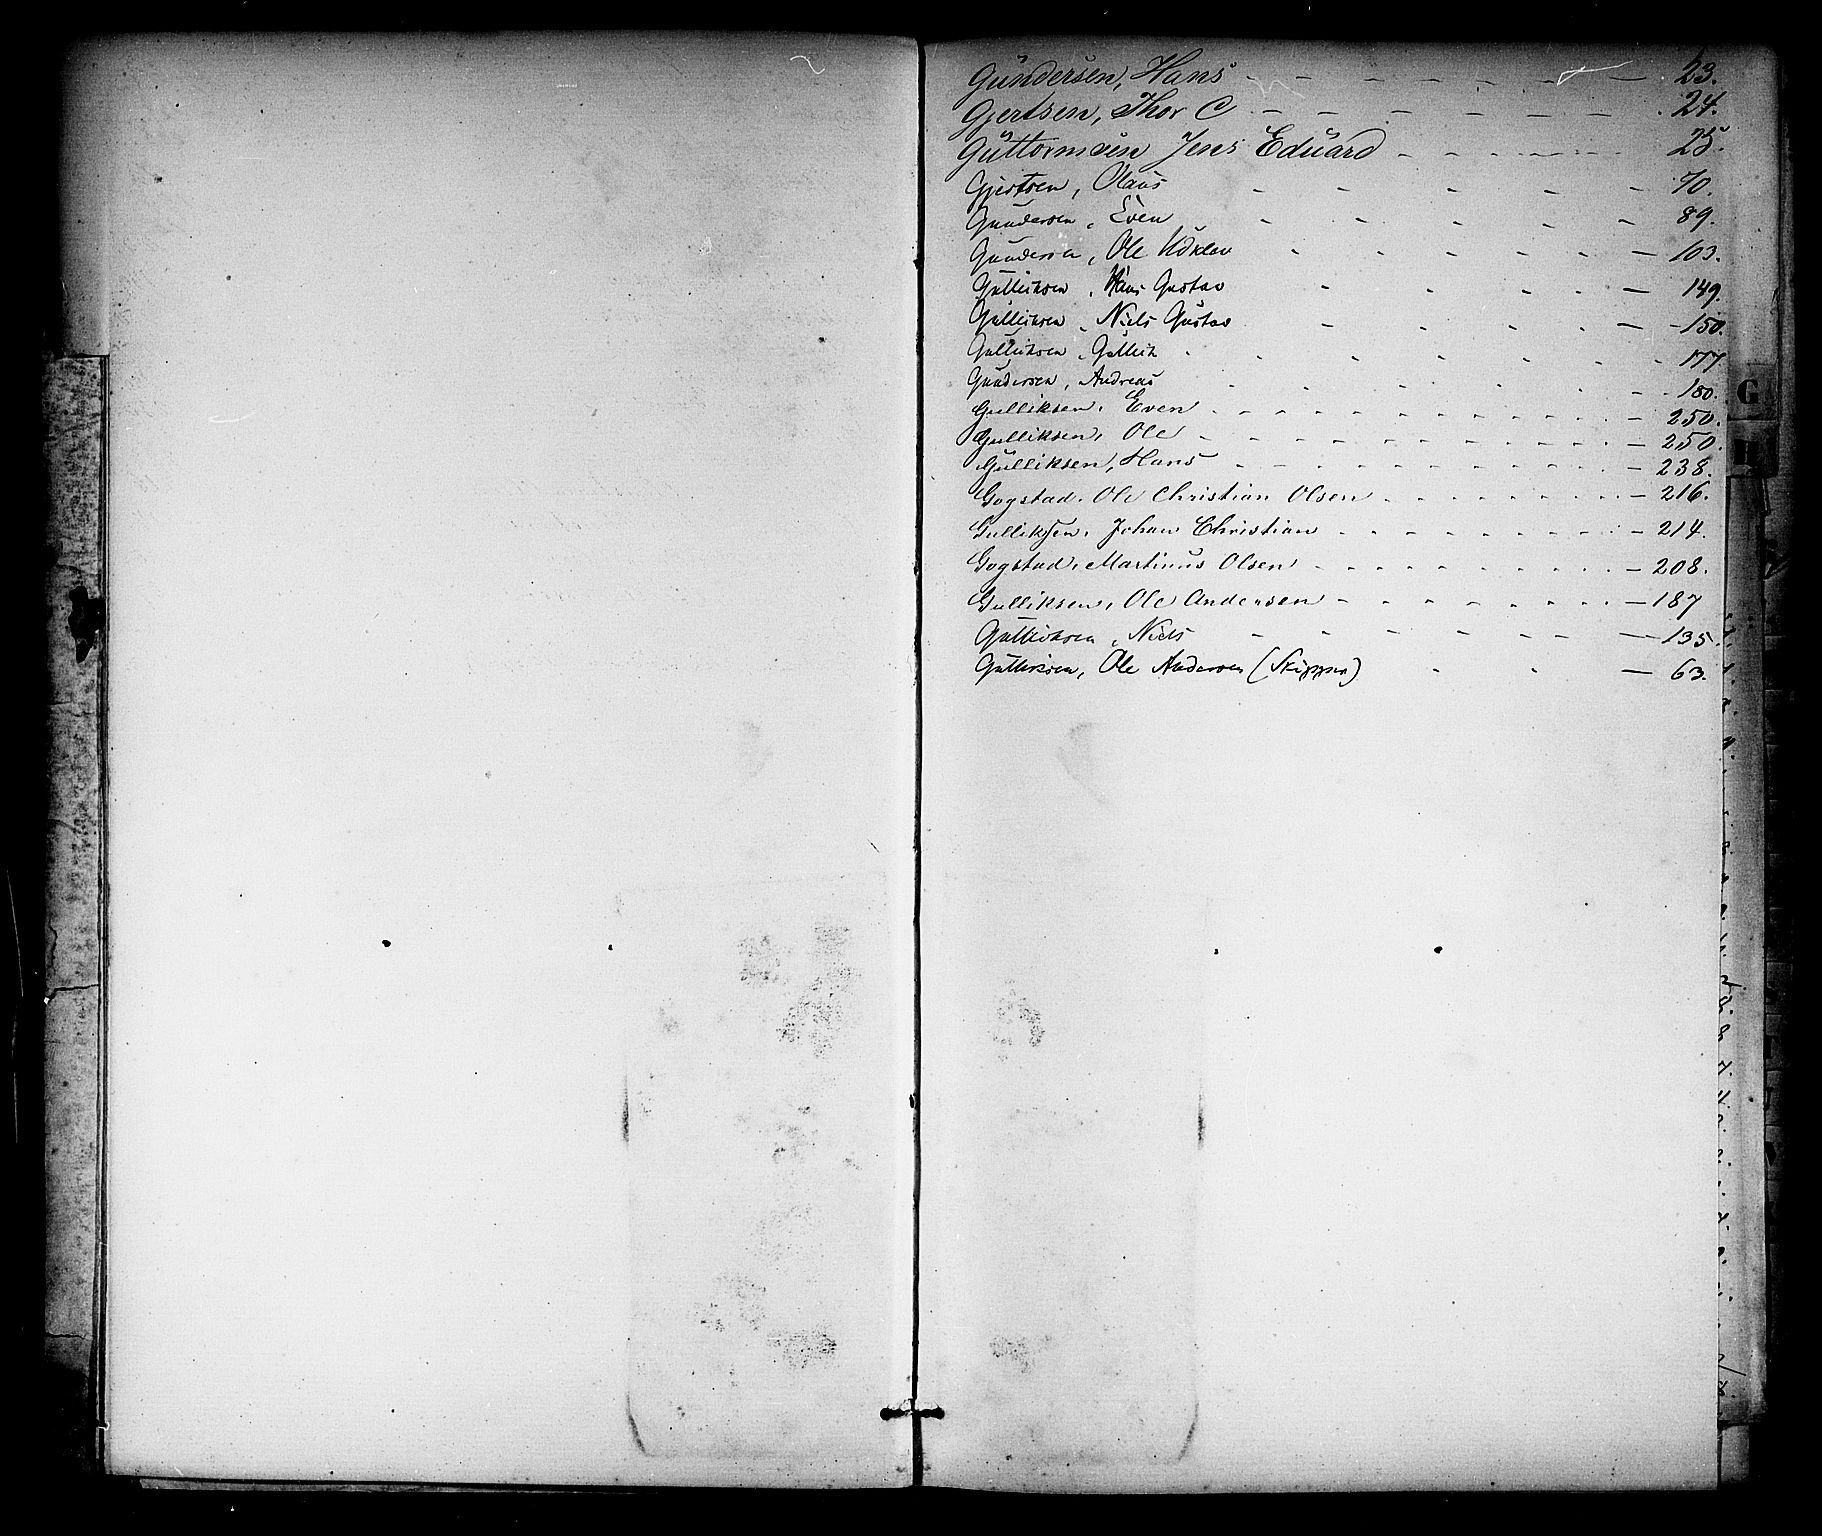 Gündersen, Hans - - - - - - - 23.
Gjertsen, Thor C - - - - - - - 24.
Güttormsen Jens Eduard - - - - - 25.
Gjertsen, Olaus - - - - - 70.
Gundersen, Even - - - - - 89.
Gundersen, Ole - - - - - 103.
Gulliksen, Hans Gustav - - - - - 149.
Gulliksen, Niels Gustav - - - - - 150.
Gulliksen, Gullik - - - - - 177
Gundersen, Andreas - - - - - 180.
Gulliksen, Even - - - - - 250.
Gulliksen, Ole - - - - - 250.
Gulliksen, Hans - - - - - 238.
Gogstad, Ole Christian Olsen - - - - - 216.
Gulliksen, Johan Christian - - - - - 214.
Gogstad, Martinus Olsen - - - - - 208.
Gulliksen, Ole Andersen - - - - - 187
Gulliksen, Niels - - - - - 135.
Gulliksen, Ole Andersen (Skipper) - - - 63.
G
H